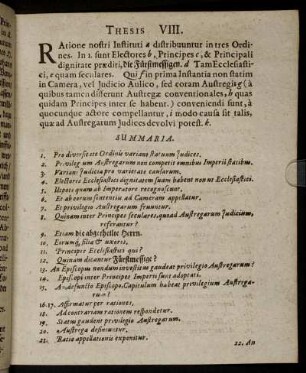 THESIS VIII.
RAtione nostri Instituti a distribuuntur in tres Ordi-
nes. In 1. sunt Electores b, Principes c, & Principali
dignitate præditi, die Fürstmessigen. d Tam Ecclesiasti-
ci, e quam seculares. Qui f in prima Instantia non statim
in Camera, vel Judicio Aulico, sed coram Austregis g (à
quibus tamen differunt Austregæ conventionales, h quas
quidam Principes inter se habent.) conveniendi sunt, à
quocunque actore compellantur, i modo causa sit talis,
quæ ad Austregarum Judices devolvi potest. k.
SUMMARIA.
1. Pro diversitate Ordinis variant statuum Judices.
2. Privilegium Austregarum non competit omnibus Imperii statibus.
3. Variant Judicia pro varietate causarum.
4. Electores Ecclesiastici dignitatem suam habent non ut Ecclesiastici.
5. Utpote quam ab Imperatore recognoscunt.
6. Et ab eorum sententia ad Cameram appellatur.
7. Et privilegio Austregarum fruuntur.
8. Quinam inter Principes seculares, quoad Austregarum Judicium,
referantur?
9. Etiam die abgetheilte Herrn.
10. Eorumq; filia & uxores.
11. Principes Ecclesiastici qui?
12. Quinam dicantur Fürstmessige?
13. An Episcopus nondum investitus gaudeat privilegio Austregarum?
14. Episcopi inter Principes Imperii sunt adoptati.
15. An defuncto Episcopo, Capitulum habeat privilegium Austrega-
rum?
16. 17. Affirmatur per rationes.
18. Ad contrariam rationem respondetur.
19. Statim gaudent privilegio Austregarum.
20. Austrega definiuntur.
21. Ratio appellationis exponitur.
22. An